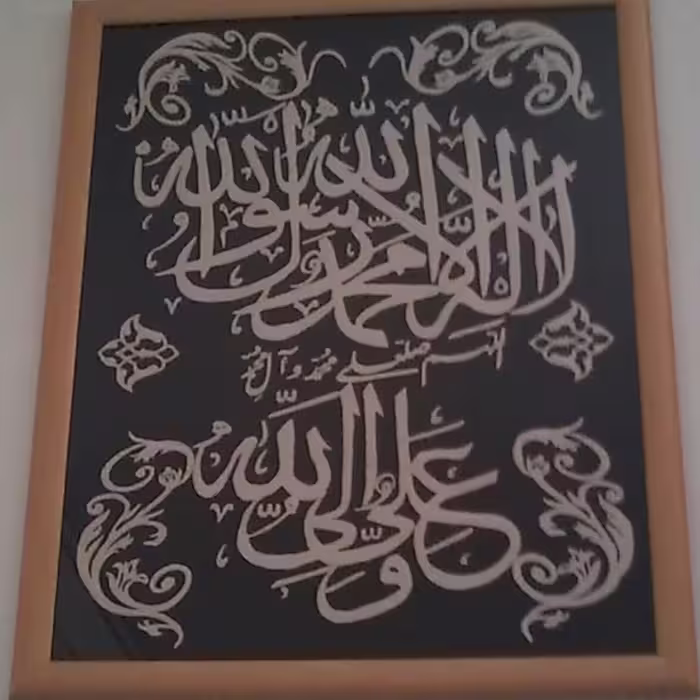 لا إله إلا الله محمد رسول الله
اللهم صل على محمد وآل محمد
علي ولي الله